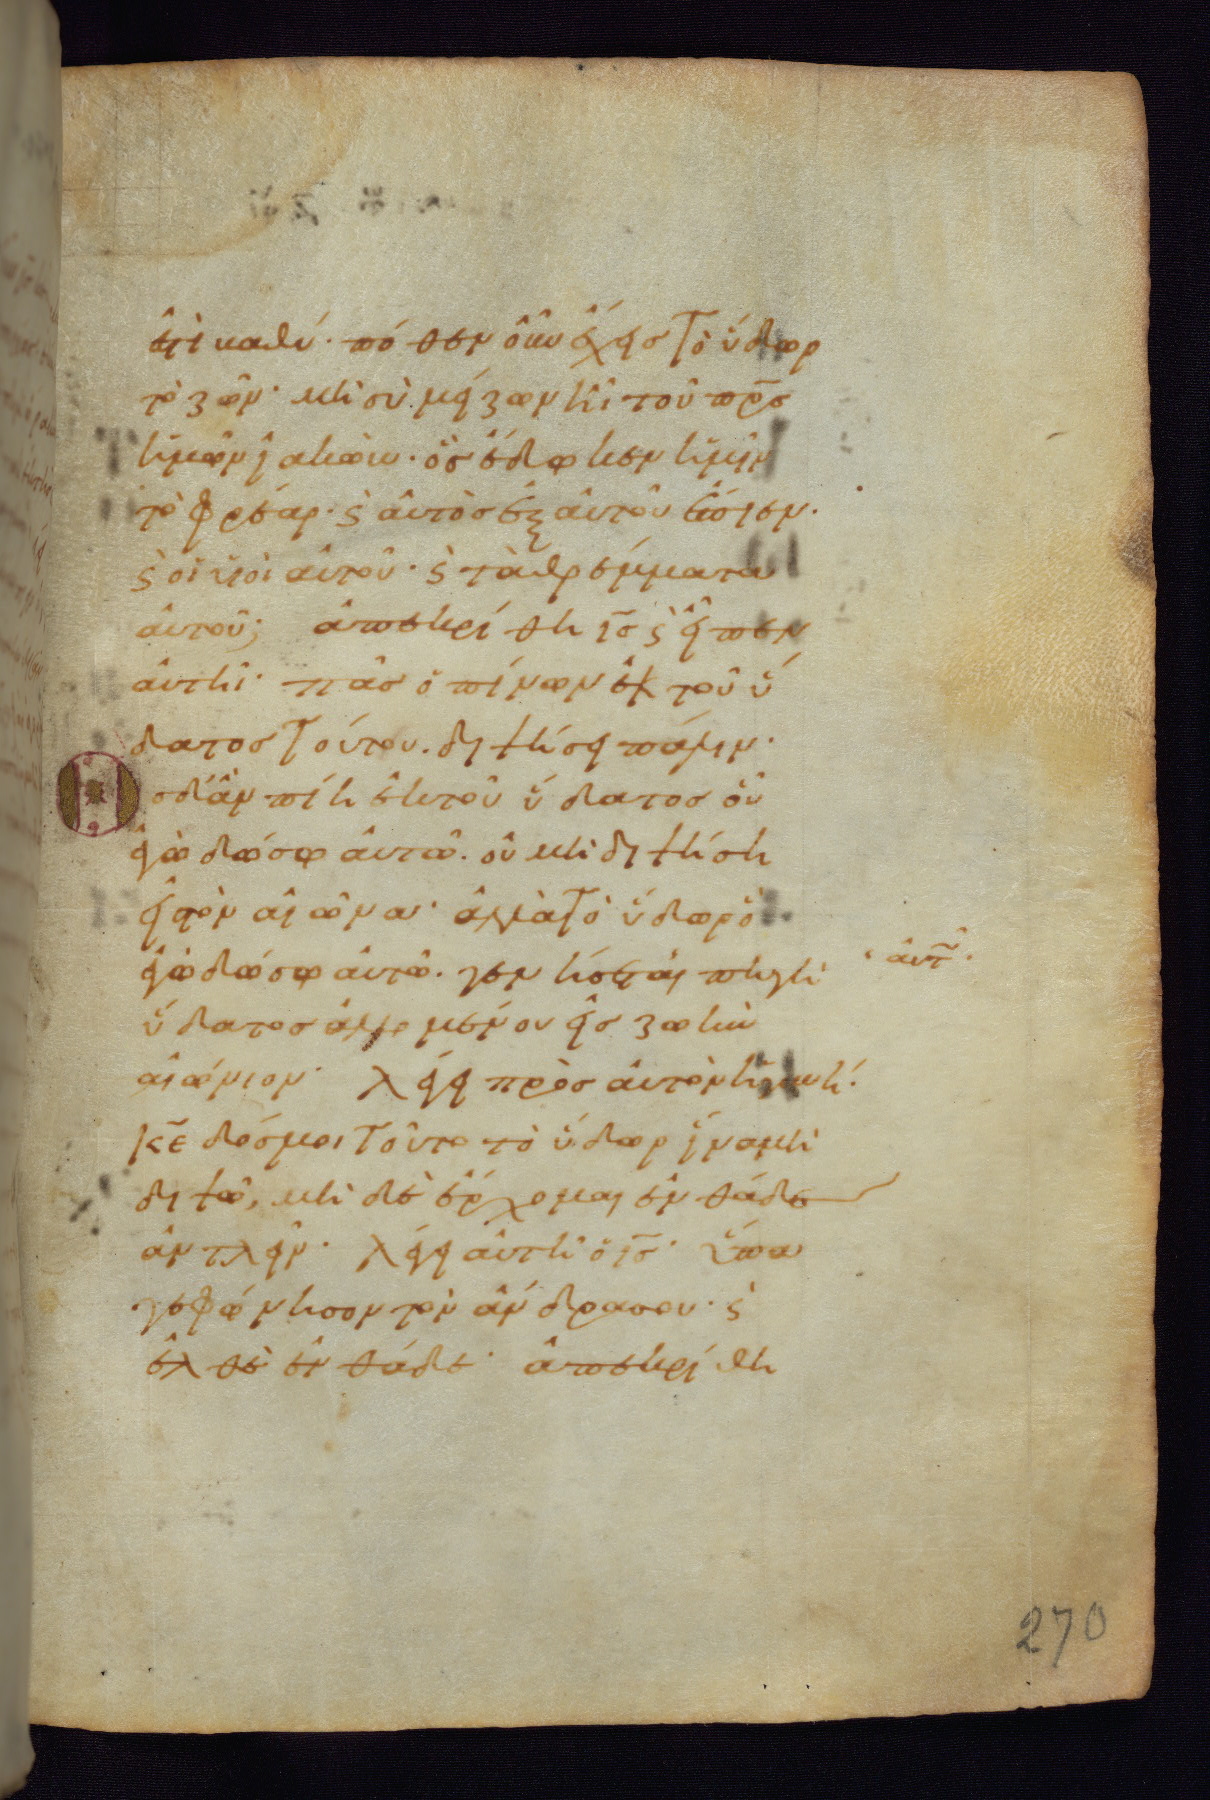 ἐστὶ βαθύ· πόθεν οὖν ἔχεις τὸ ὕδωρ
τὸ ζῶν· μὴ σὺ μείζων εἶ τοῦ πρ̅σ
ἡμῶν ἰακώβ· ὃς ἔδωκεν ἡμῖν
τὸ φρέαρ· ϛ αὐτὸς ἐξ αὐτοῦ ἔπιεν·
ϛ οἱ υἱοὶ αὐτοῦ· ϛ τὰ θρέμματα
αὐτοῦ; ἀπεκρίθη ι̅σ ϛ εἶπεν
αὐτῆ· πᾶς ὁ πίνων ἐκ τοῦ ὕ
δατος τούτου· διψήσει πάλιν·
Ο σδἂν πίη ἐκ τοῦ ὕδατος οὗ
ἐγὼ δώσω αὐτῶ· οὐ μὴ διψήση
εἰς τὸν αἰῶνα· ἀλλὰ τὸ ὕδωρ ὃ
ἐγὼ δώσω αὐτῶ· γενήσεται πηγὴ
· ἐν αὐτ̅ῶ·
ὕδατος ἁλλομένου εἰς ζωὴν
αἰώνιον· λέγει πρὸς αὐτὸν ἡ γυνή·
κ̅ε δόσμοι τοῦτο τὸ ὕδωρ ἵνα μὴ
διψῶ, μὴ δὲ ἔρχομαι ἐνθάδε
ἀντλεῖν· λέγει αὐτῆ ὁ ι̅σ· ὕπα
γε φώνησον τὸν ἄνδρα σου· ϛ
ἐλθὲ ἐνθάδε· ἀπεκρίθη
270